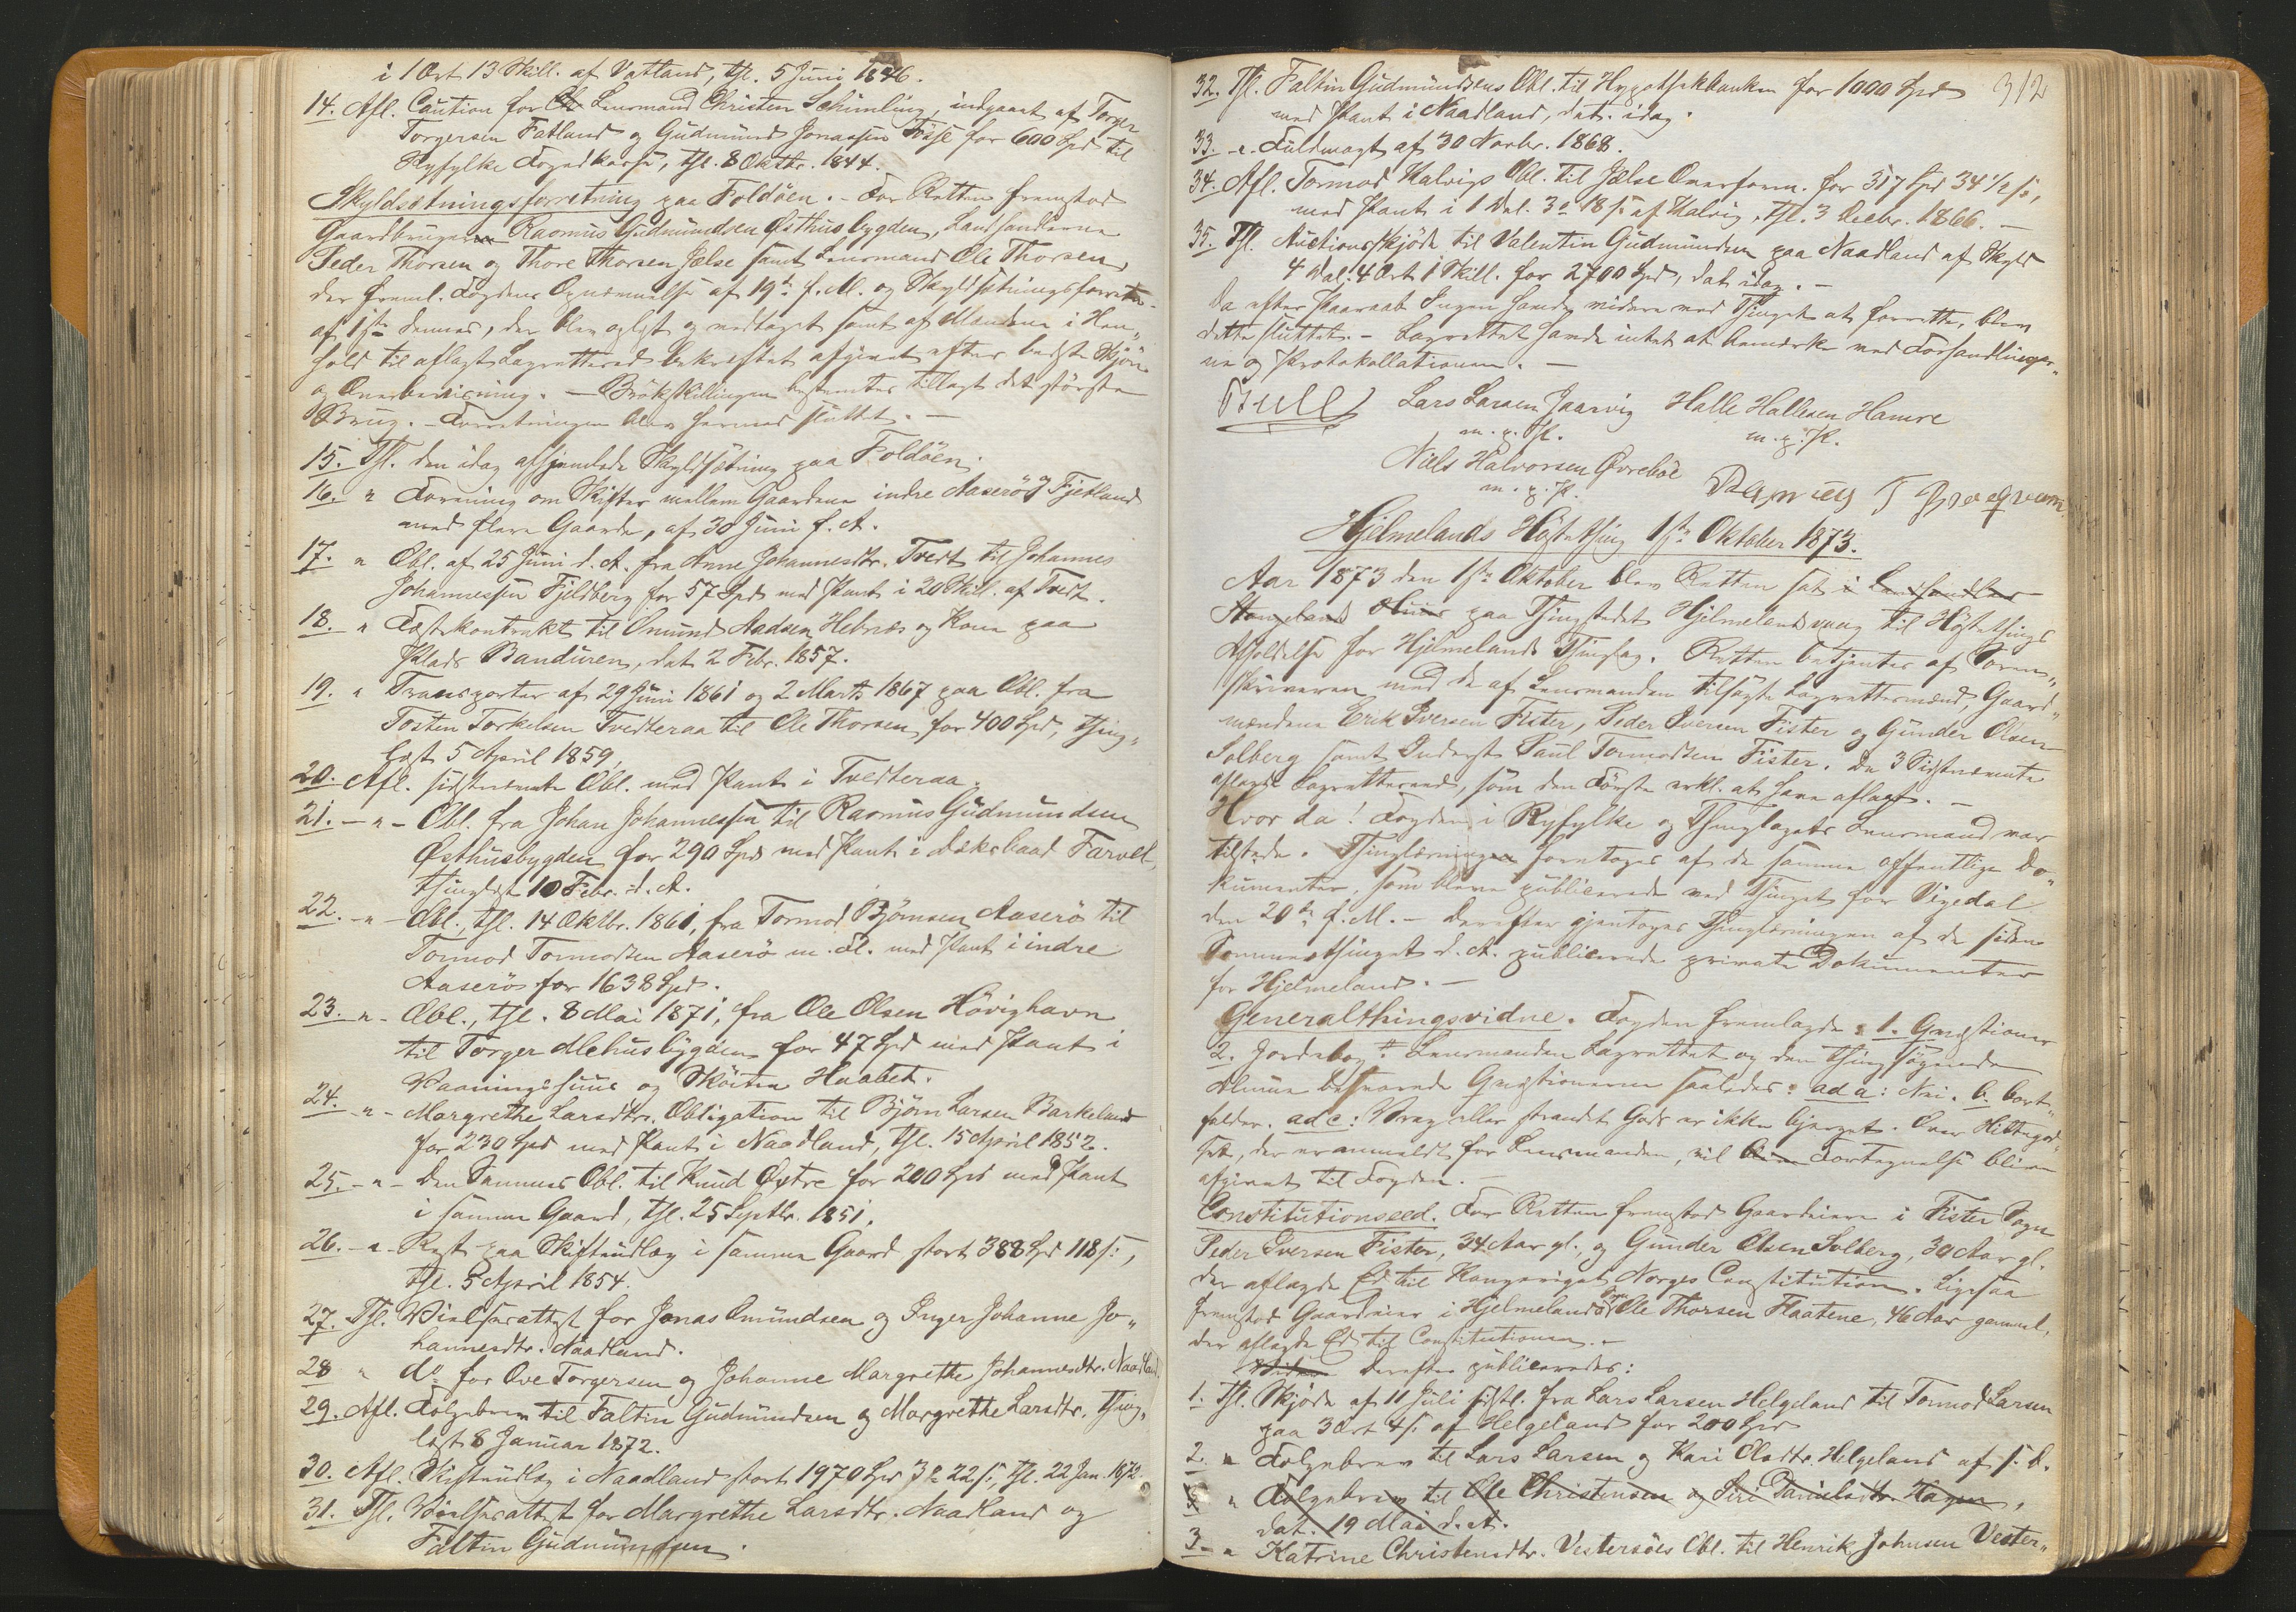 i 1 Ort 13 Skill. af Vatland, tgl. 5 Juni 1846.
14. Afl. Caution for Lensmand Christen Schimling, indgaaet af Torger
Torgersen Fatland og Gudmund Jonassen Foss for 600 Spd til
Ryfylke Fogedkasse, tgl. 8 Oktbr. 1844.
Skyldsætningsforretning paa Foldöen. - For Retten fremstod
Gaardbruger Rasmus Gudmundsen Østhusbygden, Landhandlerne
Peder Thorsen og Thore Thorsen Jelse samt Lensmand Ole Thorsen,
der freml. Fogdens Opnævnelse af 19de f. M. og Skyldsætningsforretn.
af 1ste dennes, der blev oplæst og vedtaget samt af Mændene i Hen„
hold til aflagt Lagretteeed bekræftet afgivet efter bedste Skjön
og Overbevisning. - Brökskillingen bestemtes tillagt det störste
Brug. - Forretningen blev hermed sluttet. -
15. Tgl. den idag afhjemlede Skyldsætning paa Foldöen.
16. " Forening om Skifter mellem Gaardene indre Aaserö og Fjetland
med flere Gaarde, af 30 Juni f. A.
17. " Obl. af 25 Juni d. A. fra Anne Johannesdtr. Tvedt til Johannes
Johannessen Fjeldberg for 57 Spd med Pant i 20 Skill. af Tvedt.
18. " Fæstekontrakt til Omund Aadsen Hebnes og Kone paa
Plads Banduren, dat 2 Febr. 1857.
19. " Transporter af 29 Juni 1861 og 2 Marts 1867 paa Obl. fra
Tosten Torkelsen Tvedteraa til Ole Thorsen for 400 Spd, thing„
læst 5 April 1859.
20. Afl. sidstnævnte Obl. med Pant i Tvedteraa.
21. - " - Obl. fra Johan Johannessen til Rasmus Gudmundsen
Østhusbygden for 290 Spd med Pant i Dæksbaad Farvel,
thinglæst 10 Febr. d. A.
22. - " - Obl., tgl. 14 Oktbr. 1861, fra Tormod Björnsen Aaserö til
Tormod Tormodsen Aaserö m. Fl. med Pant i indre
Aaserö for 1638 Spd.
23. - " - Obl., tgl. 8 Mai 1871, fra Ole Olsen Hövighavn
til Torger Mehusbygden for 47 Spd med Pant i
Vaaningshuus og Sköiten Haabet.
24. - " - Margrethe Larsdtr. Obligation til Björn Larsen Barkeland
for 230 Spd med Pant i Naadland, tgl. 15 April 1852.
25. - " - Den Sammes Obl. til Knud Øxtre for 200 Spd med Pant
i samme Gaard, tgl. 25 Septbr. 1851.
26. - " - Rest paa Skifteudlæg i samme Gaard stort 388 Spd 118 s:,
tgl. 5 April 1854.
27. Tgl. Vielsesattest for Jonas Omundsen og Inger Johanne Jo„
hannesdtr. Naadland.
28 " do for Ove Torgersen og Johanne Margrethe Johannesdtr. Naadland.
29. Afl. Følgebrev til Faltin Gudmundsen og Margrethe Larsdtr. thing„
læst 8 Januar 1872.
30. Afl. Skifteudlæg i Naadland stort 1970 Spd 3 o 22 s:, tgl. 22 Jan. 1872.
31. Tgl. Vielsesattest for Margrethe Larsdtr. Naadland og
Faltin Gudmundsen.
312
32. Tgl. Faltin Gudmundsens Obl. til Hypothekbanken for 1000 Spd
med Pant i Naadland, dat. idag.
33. - " - Fuldmagt af 30 Novbr. 1868.
34. Afl. Tormod Halvigs Obl. til Jelse Overform. for 317 Spd 34 1/2 s:,
med Pant i 1 Dal. 3 o 18 s: af Halvig, tgl. 3 Decbr. 1866. -
35. Tgl. Auctionsskjöde til Valentin Gudmundsen paa Naadland af Skyld
4 Dal. 4 Ort 1 Skill. for 2700 Spd, dat idag. -
Da efter Paaraab Ingen havde videre ved Thinget at forrette, blev
dette sluttet. - Lagrettet havde intet at bemærke ved Forhandlinger„
ne og Protokollationen. -
Bull Lars Larsen Jaarvig Halle Hallesen Hamre
m. p. P. m. p. P.
Niels Halvorsen Øvreböe
m. p. P.
Hjelmelands Høstething 1ste Oktober 1873.
Aar 1873 den 1ste Oktober blev Retten sat i Landhandler
Huus paa Thingstedet Hjelmelandsvaag til Høstethings
Afholdelse for Hjelmelands Thinglag. Retten betjentes af Soren„
skriveren med de af Lensmanden tilsagte Lagrettesmænd, Gaard„
mændene Erik Iversen Fister, Peder Iversen Fister og Gunder Olsen
Solberg samt Inderst Paul Tormodsen Fister. De 3 Sidstnævnte
aflagde Lagretteeed, som den Förste erkl. at have aflagt. -
Hvor da! Fogden i Ryfylke og Thinglagets Lensmand var
tilstede. Thinglæsningen foretoges af de samme offentlige Do„
kumenter, som bleve publicerede ved Thinget for Vigedal
den 20de f. M. - Derefter gjentoges Thinglæsningen af de siden
Sommerthinget d. A. publicerede private Dokumenter
for Hjelmeland. -
Generalthingsvidne. Fogden fremlagde: 1. Qvæstioner
2. Jordebog. Lensmanden Lagrettet og den thingsögende
Almue besvarede Qvæstionerne saaledes: ad a: Nei. b. bort„
falder. ad c: Vrag eller strandet Gods er ikke bjerget. Over Hittegod„
set, der er anmeldt for Lensmanden, vil Fortegnelse blive
afgivet til Fogden. -
Constitutionseed. For Retten fremstod Gaardeiere i Fister Sogn
Peder Iversen Fister, 34 Aar gl., og Gunder Olsen Solberg, 30 Aar gl.
der aflagde Ed til Kongeriget Norges Constitution. Ligesaa
fremstod Gaardeier i Hjelmelands Sogn Ole Thorsen Flaatene, 46 Aar gammel,
der aflagde Ed til Constitutionen. -
Derefter publiceredes:
1. Tgl. Skjöde af 11 Juli sidstl. fra Lars Larsen Helgeland til Tormod Larsen
paa 3 Ort 4 s: af Helgeland for 200 Spd
2. " Følgebrev til Lars Larsen og Kari Olsdtr. Helgeland af s. D.
3 " Følgebrev til Ole Christensen og Siri Danielsdtr. Hagen,
dat. 19 Mai d. A.
3 - " Katrine Christensdtr. Vestersöes Obl. til Henrik Johnsen Vester„